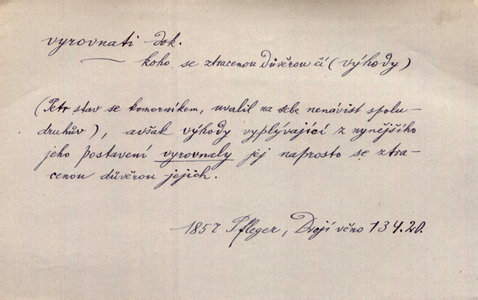 vyrovnati dok.
koho se ztracenou důvěrou čí (výhody)
(Petr stav se komorníkem, uvalil na sebe nenávist spolu-
druhův), avšak výhody vyplývající z nynějšího
jeho postavení vyrovnaly jej naprosto se ztra-
cenou důvěrou jejich.
1857 Pfleger, Dvojí věno 134.20.